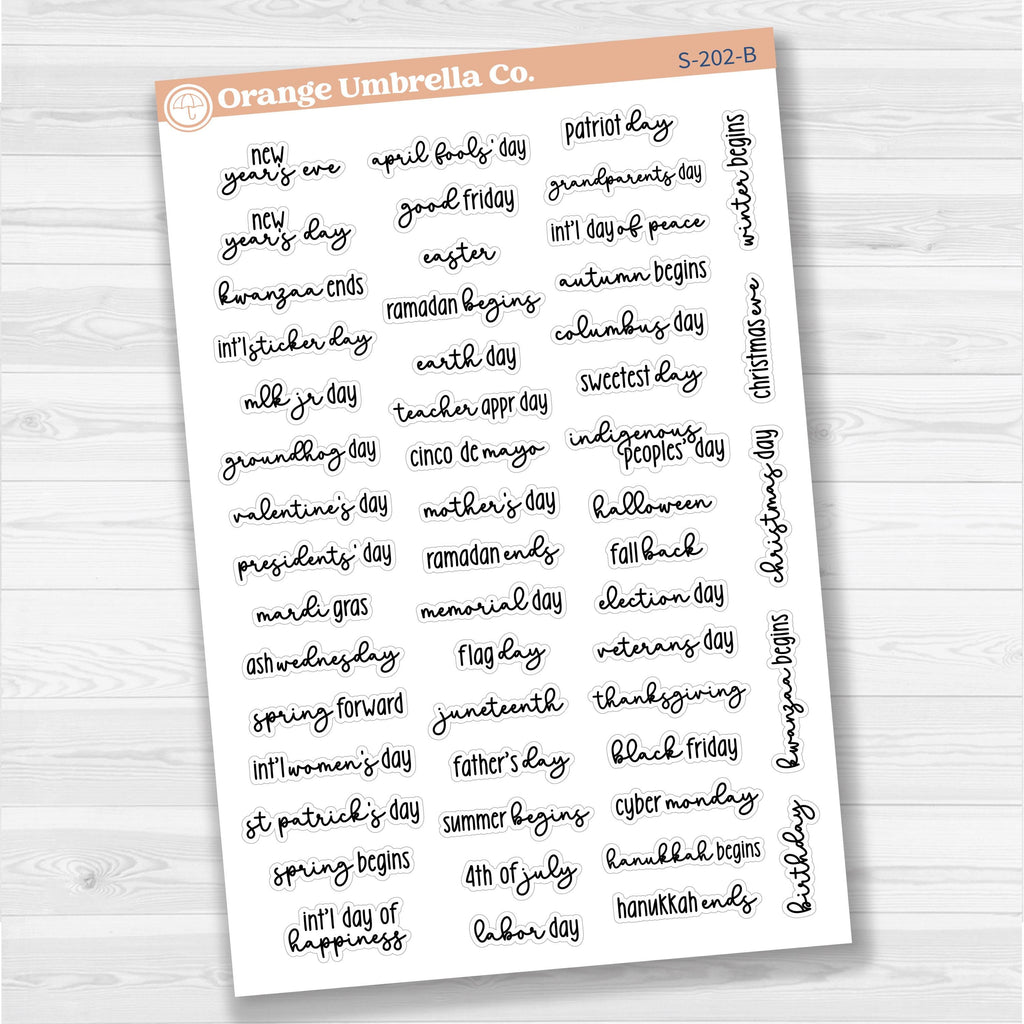 Orange Umbrella Co.
S-202-B
new
year's eve
new
year's day
kwanzaa ends
int'l sticker day
mlk jr day
groundhog day
valentine's day
presidents' day
mardi gras
ash wednesday
spring forward
int'l women's day
st patrick's day
spring begins
int'l day of
happiness
april fools' day
good friday
easter
ramadan begins
earth day
teacher appr day
cinco de mayo
mother's day
ramadan ends
memorial day
flag day
juneteenth
father's day
summer begins
4th of july
labor day
patriot day
grandparents day
int'l day of peace
autumn begins
columbus day
sweetest day
indigenous
peoples' day
halloween
fall back
election day
veterans day
thanksgiving
black friday
cyber monday
hanukkah begins
hanukkah ends
winter begins
christmas eve
christmas day
kwanzaa begins
birthday